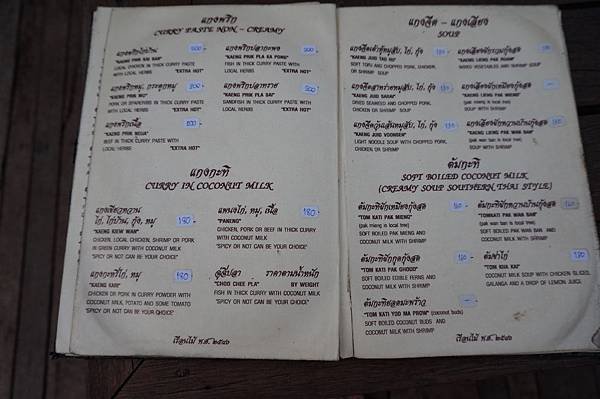 แกงพริก
CURRY PASTE NON - CREAMY
แกงพริกไก่บ้าน
"KAENG PRIK GAI BAN"
LOCAL CHICKEN IN THICK CURRY PASTE
WITH LOCAL HERBS "EXTRA HOT"
แกงพริกหมู, กระดูกหมู 200.-
"KAENG PRIK MU"
PORK OR SPARERIBS IN THICK CURRY PASTE
WITH LOCAL HERBS "EXTRA HOT"
แกงพริกเนื้อ 200
"KAENG PRIK NEUA"
BEEF IN THICK CURRY PASTE WITH
LOCAL HERBS "EXTRA HOT"
แกงพริกปลากะพง
"KAENG PRIK PLA KA PONG"
FISH IN THICK CURRY PASTE WITH
LOCAL HERBS "EXTRA HOT"
แกงพริกปลาทราย
"KAENG PRIK PLA SAI"
SANDFISH IN THICK CURRY PASTE WITH
LOCAL HERBS "EXTRA HOT"
แกงกะทิ
CURRY IN COCONUT MILK
แกงเขียวหวาน
ไก่, ไก่บ้าน, กุ้ง, หมู 180.-
"KAENG KIEW WAN"
CHICKEN, LOCAL CHICKEN, SHRIMP OR PORK
IN GREEN CURRY WITH COCONUT MILK
"SPICY OR NOT CAN BE YOUR CHOICE"
แกงกะหรี่ไก่, หมู 180
"KAENG KARI"
CHICKEN OR PORK IN CURRY POWDER WITH
COCONUT MILK, POTATO AND SOME TOMATO
"SPICY OR NOT CAN BE YOUR CHOICE"
แพนงไก่, หมู, เนื้อ 180.-
"PANENG"
CHICKEN, PORK OR BEEF IN THICK CURRY
WITH COCONUT MILK
"SPICY OR NOT CAN BE YOUR CHOICE"
ฉู่ฉี่ปลา ราคาตามน้ำหนัก
"CHOO CHEE PLA" BY WEIGHT
FISH IN THICK CURRY WITH COCONUT MILK
"SPICY OR NOT CAN BE YOUR CHOICE"
เรือนไม้ พ.ศ. ๒๕๔๖
แกงจืด - แกงเลียง
SOUP
แกงจืดเต้าหู้หมูสับ, ไก่, กุ้ง
"KAENG JUED TAO HU"
SOFT TOFU AND CHOPPED PORK, CHICKEN,
OR SHRIMP SOUP
แกงจืดสาหร่ายหมูสับ, ไก่, กุ้ง
"KAENG JUED SARAI"
DRIED SEAWEED AND CHOPPED PORK,
CHICKEN OR SHRIMP SOUP
แกงจืดวุ้นเส้นหมูสับ, ไก่, กุ้ง
"KAENG JUED VOONSEN"
LIGHT NOODLE SOUP WITH CHOPPED PORK,
CHICKEN OR SHRIMP
แกงเลียงผักรวมกุ้งสด
"KAENG LIENG PAK RUAM"
MIXED VEGETABLES AND SHRIMP SOUP
แกงเลียงผักเหมียงกุ้งสด
"KAENG LIENG PAK MIENG"
(pak mieng is local tree)
SOUP WITH SHRIMP
แกงเลียงผักหวานบ้านกุ้งสด
"KAENG LIENG PAK WAN BAN"
(pak wan ban is local tree)
SOUP WITH SHRIMP
ต้มกะทิ
SOFT BOILED COCONUT MILK
(CREAMY SOUP SOUTHERN THAI STYLE)
ต้มกะทิผักเหมียงกุ้งสด
"TOM KATI PAK MIENG"
(pak mieng is local tree)
SOFT BOILED PAK MIENG AND
COCONUT MILK WITH SHRIMP
ต้มกะทิผักกูดกุ้งสด
"TOM KATI PAK GHOOD"
SOFT BOILED EDIBLE FERNS AND
COCONUT MILK WITH SHRIMP
ต้มกะทิยอดมะพร้าว
"TOM KATI YOD MA PROW" (coconut buds)
SOFT BOILED COCONUT BUDS AND
COCONUT MILK WITH SHRIMP
ต้มกะทิผักหวานบ้านกุ้งสด
"TOMKATI PAK WAN BAN"
(pak wan ban is local tree)
SOFT BOILED PAK WAN BAN AND
COCONUT MILK WITH SHRIMP
ต้มข่าไก่ 180
"TOM KHA KAI"
COCONUT MILK SOUP WITH CHICKEN SLICED,
GALANGA AND A DROP OF LEMON JUICE
เรือนไม้ พ.ศ. ๒๕๔๖